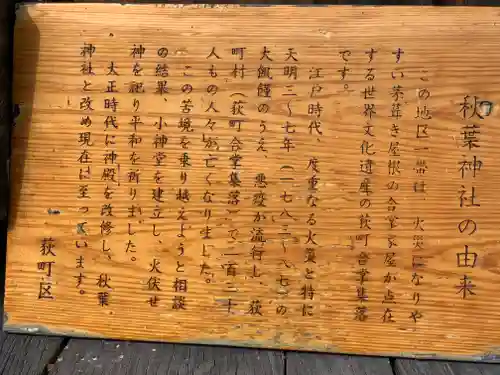 秋葉神社の由来
この地区一帯は、火災になりや
すい茅葺き屋根の合掌家屋が点在
する世界文化遺産の荻町合掌集落
です。
江戸時代、度重なる火災と特に
天明三〜七年（一七八三〜八七）の
大飢饉のうえ、悪疫が流行し、荻
町村（荻町合掌集落）で二百二十
人もの人々が亡くなりました。
この苦境を乗り越えようと相談
の結果、小神堂を建立し、火伏せ
神を祀り平和を祈りました。
大正時代に神殿を改修し、秋葉
神社と改め現在に至っています。
荻町区